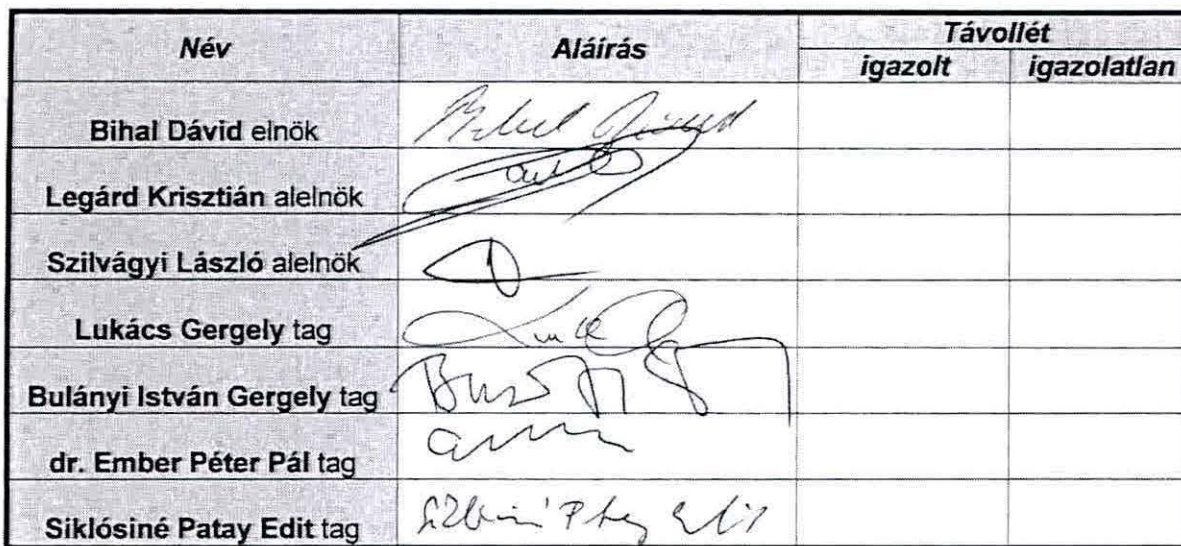 Név Aláírás Távollét
igazolt igazolatlan
Bihal Dávid elnök Bihal Dávid
Legárd Krisztián alelnök
Szilvágyi László alelnök
Lukács Gergely tag
Bulányi István Gergely tag
dr. Ember Péter Pál tag
Siklósiné Patay Edit tag Siklósiné Patay Edit